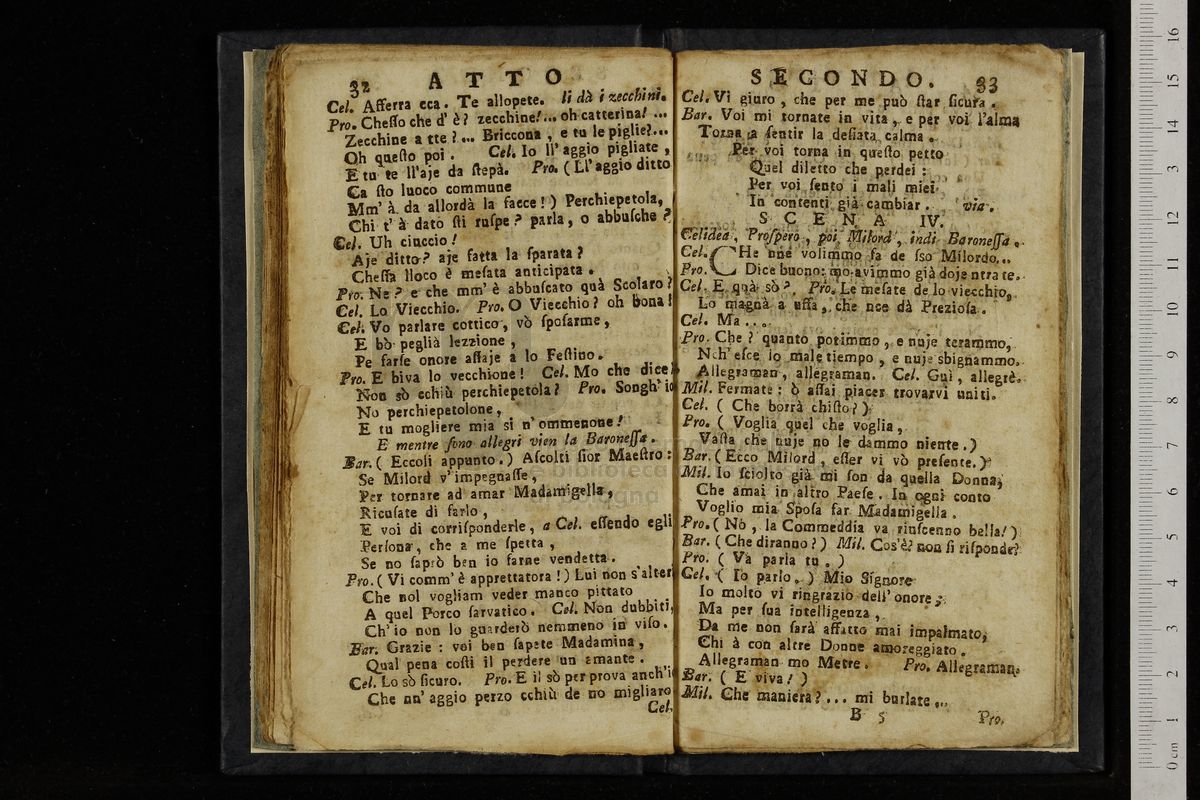 32 ATTO
Cel. Afferra cca. Te allopete. li dà i zecchini.
Pro. Cheſto che d' è? zecchine!... oh catterina! ...
Zecchine a tte?... Briccona, e tu le piglie?...
Oh queſto poi. Cel. Io ll' aggio pigliate,
E tu te ll'aje da ſtepà. Pro. (Ll'aggio ditto
Ca ſto luoco commune
Mm' à da allordà la facce!) Perchiepetola,
Chi t' à dato ſti ruſpe? parla, o abbuſche?
Cel. Uh ciuccio!
Aje ditto? aje fatta la ſparata?
Cheſſa lloco è meſata anticipata.
Pro. Ne? e che mm' è abbuſcato quà Scolaro?
Cel. Lo Viecchio. Pro. O Viecchio? oh bona!
Cel. Vo parlare cottico, vò ſpoſarme,
E bò peglià lezzione,
Pe farſe onore aſſaje a lo Feſtino.
Pro. E biva lo vecchione! Cel. Mo che dice
Non sò cchiù perchiepetola? Pro. Songh' io
No perchiepetolone,
E tu mogliere mia si n' ommenone!
E mentre ſono allegri vien la Baroneſſa.
Bar. (Eccoli appunto.) Aſcolti ſior Maeſtro:
Se Milord v' impegnaſſe,
Per tornare ad amar Madamigella,
Ricuſate di farlo,
E voi di corriſponderle, a Cel. eſſendo egli
Perſona, che a me ſpetta,
Se no ſaprò ben io farne vendetta.
Pro. (Vi comm' è apprettatora!) Lui non s'alteri
Che nol vogliam veder manco pittato
A quel Porco ſarvatico. Cel. Non dubbiti,
Ch' io non lo guarderò nemmeno in viſo.
Bar. Grazie: voi ben ſapete Madamina,
Qual pena coſti il perdere un amante.
Cel. Lo sò ſicuro. Pro. E il sò per prova anch'i
Che nn' aggio perzo cchiù de no migliaro
Cel.
SECONDO. 33
Cel. Vi giuro, che per me può ſtar ſicura.
Bar. Voi mi tornate in vita, e per voi l'alma
Torna a ſentir la deſiata calma.
Per voi torna in queſto petto
Quel diletto che perdei:
Per voi ſento i mali miei
In contenti già cambiar. via.
SCENA IV.
Celidea, Proſpero, poi Milord, indi Baroneſſa.
Cel. CHe nne volimmo fa de ſso Milordo...
Pro. Dice buono: mo avimmo già doje ntrate.
Cel. E quà sò? Pro. Le meſate de lo viecchio,
Lo magnà a uffa, che nce dà Prezioſa.
Cel. Ma...
Pro. Che? quanto potimmo, e nuje terammo,
Nch' eſce lo male tiempo, e nuje sbignammo.
Allegraman, allegraman. Cel. Gui, allegrè.
Mil. Fermate: ò aſſai piacer trovarvi uniti.
Cel. (Che borrà chiſto?)
Pro. (Voglia quel che voglia,
Vaſta che nuje no le dammo niente.)
Bar. (Ecco Milord, eſſer vi vò preſente.)
Mil. Io ſciolto già mi ſon da quella Donna,
Che amai in altro Paeſe. In ogni conto
Voglio mia Spoſa far Madamigella.
Pro. (Nò, la Commeddia va rinſcenno bella!)
Bar. (Che diranno?) Mil. Cos'è? non ſi riſponde?
Pro. (Va parla tu.)
Cel. (Io parlo.) Mio Signore
Io molto vi ringrazio dell' onore;
Ma per ſua intelligenza,
Da me non ſarà affatto mai impalmato,
Chi à con altre Donne amoreggiato.
Allegraman mo Metre. Pro. Allegraman.
Bar. (E viva!)
Mil. Che maniera?... mi burlate...
B 5 Pro.